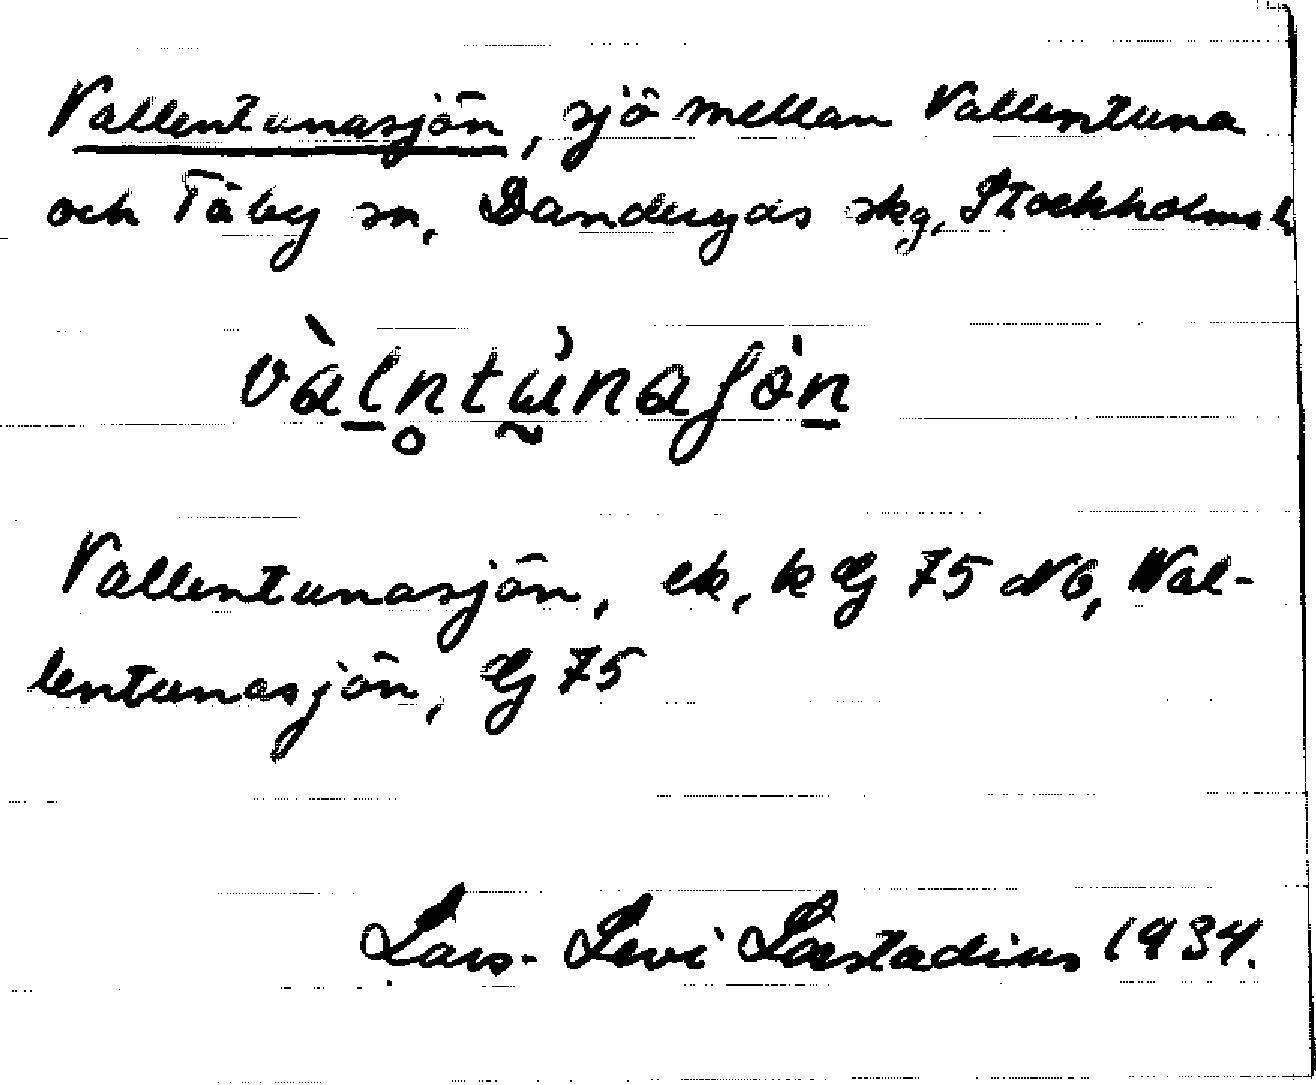 Vallentunasjön, sjö mellan Vallentuna
och Täby sn, Danderyds skg, Stockholms l.
vàl̲n̥tṵnaʃön̲
Vallentunasjön, ek, k Lg 75 NO, Wal-
lentunasjön, Lg 75
Lars-Levi Læstadius 1934.